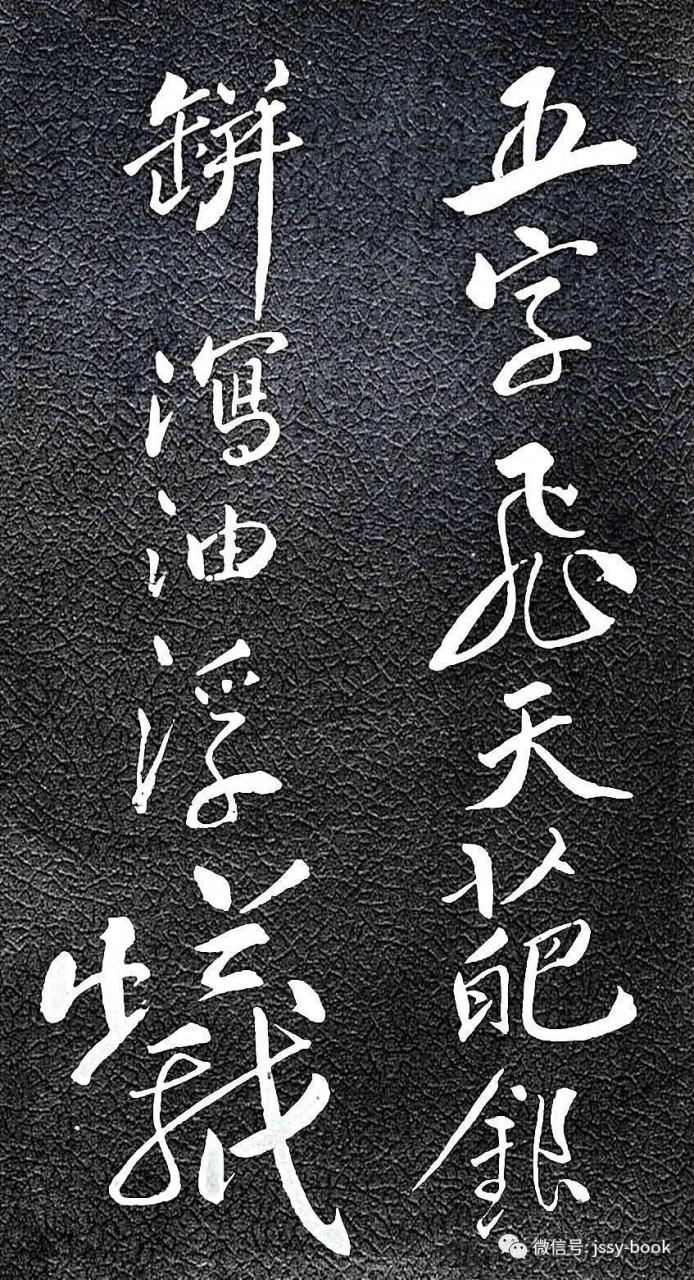 五字飛天葩銀
缾瀉油浮蟻
微信号: jssy-book